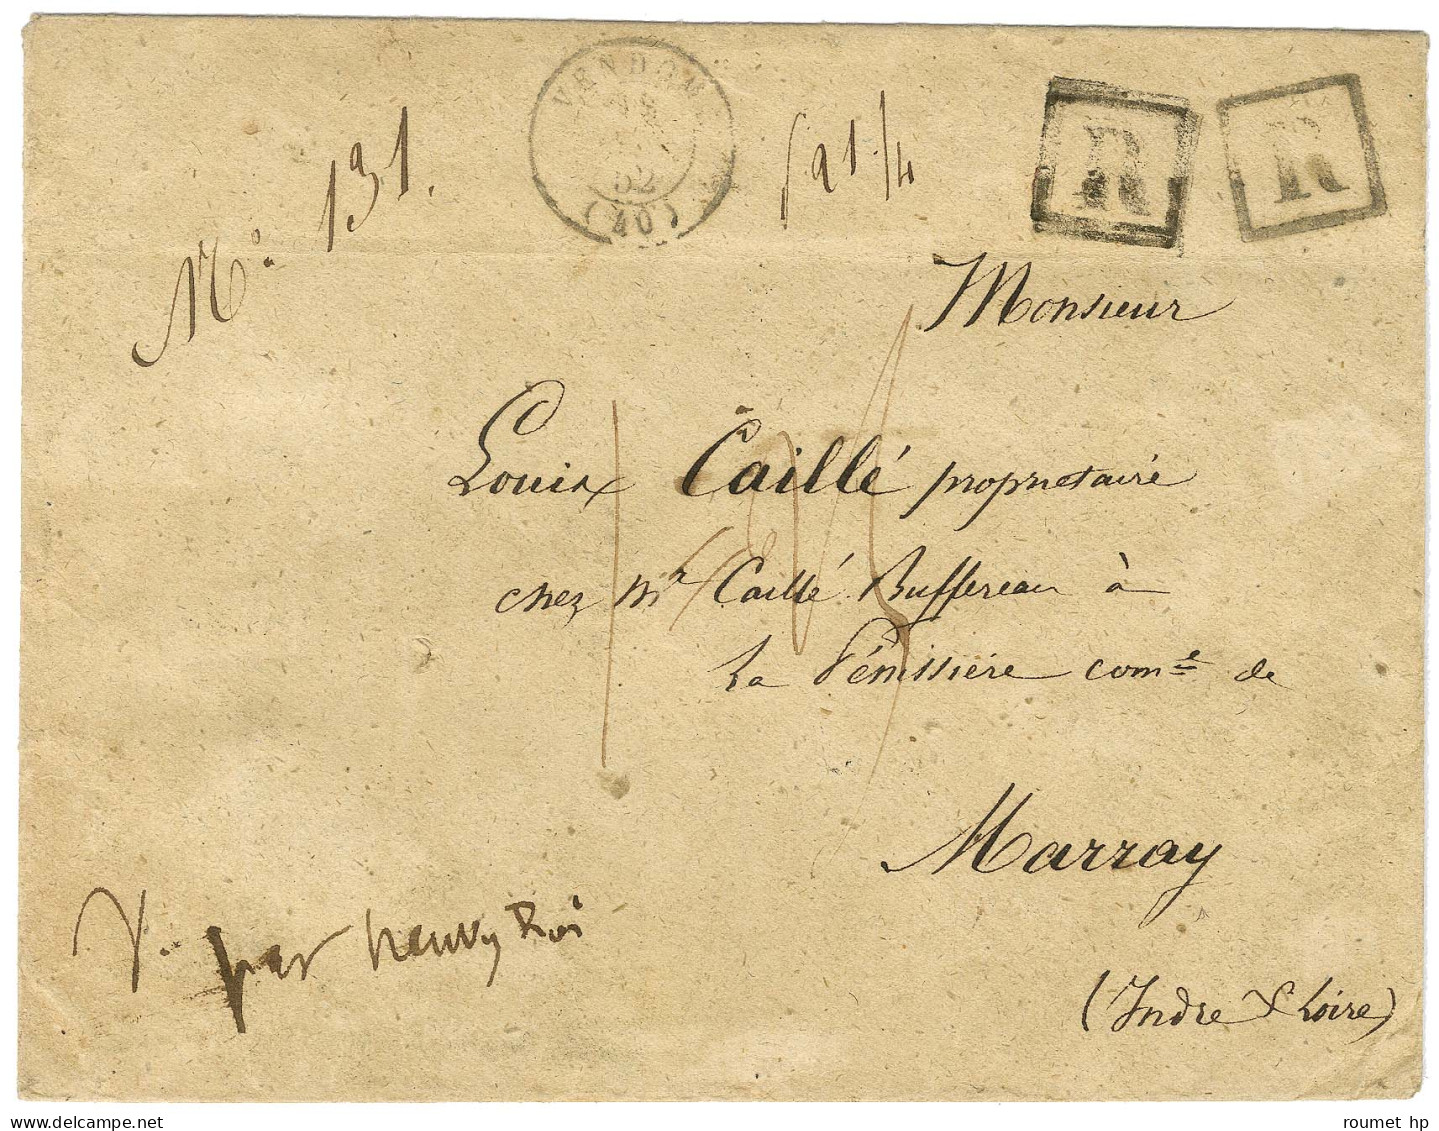 VENDOME
52
(40)
R
R
N°. 131.
Monsieur
Louis Caillé propriétaire
chez Mr Caillé Buffereau à
La Pénissière come de
Marray
(Indre & Loire)
par neuvy Roi
roumet hp